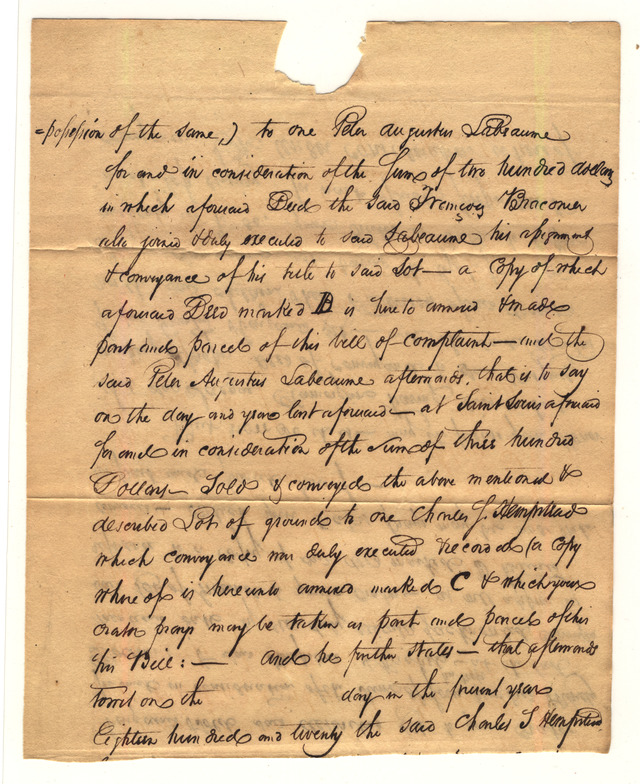 =possession of the same,) to one Peter Augustus Labeaume
for and in consideration of the Sum of two hundred dollars
in which aforesaid Deed the said Francois Braconier
also joined & duly executed to said Labeaume his assignment
& conveyance of his title to said Lot — a Copy of which
aforesaid Deed marked B is hereto annexed & made
part and parcel of this bill of Complaint — and the
said Peter Augustus Labeaume afterwards, that is to say
on the day and year last aforesaid — at Saint Louis aforesaid
for and in consideration of the Sum of three hundred
Dollars — Sold & conveyed the above mentioned &
described Lot of ground to one Charles S. Hempstead
which conveyance was duly executed & recorded (a copy
where of is hereunto annexed marked C & which your
orator prays may be taken as part and parcel of this
his Bill: — And he further states — that afterwards
towit on the day in the present year
Eighteen hundred and twenty the said Charles S Hempstead